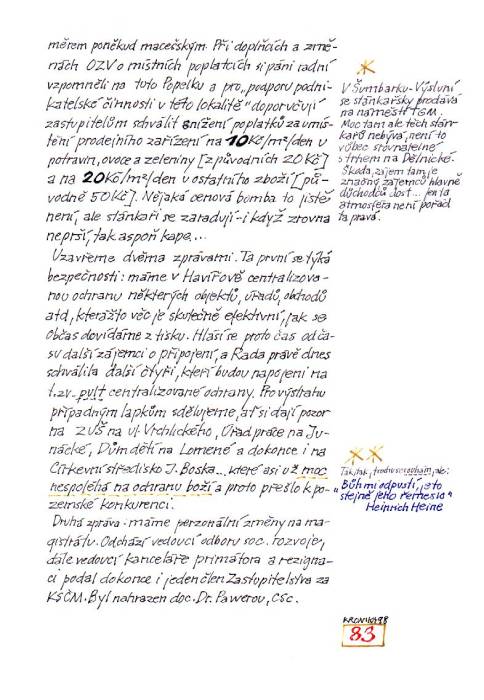 měrem poněkud macešským. Při doplňcích a změ-
nách OZV o místních poplatcích si páni radní
vzpomněli na tuto Popelku a pro „podporu podni-
katelské činnosti v této lokalitě" doporučují
zastupitelům schválit snížení poplatků za umís-
tění prodejního zařízení na 10 Kč/m²/den u
potravin, ovoce a zeleniny [z původních 20 Kč]
a na 20 Kč/m²/den u ostatního zboží [pů-
vodně 50 Kč]. Nějaká cenová bomba to jistě
není, ale stánkaři se zaradují - i když zrovna
neprší, tak aspoň kape...
Uzavřeme dvěma zprávami. Ta první se týká
bezpečnosti: máme v Havířově centralizova-
nou ochranu některých objektů, úřadů, obchodů
atd, kterážto věc je skutečně efektivní, jak se
občas dovídáme z tisku. Hlásí se proto čas od ča-
su další zájemci o připojení, a Rada právě dnes
schválila další čtyři, kteří budou napojeni na
t.zv. pult centralizované ochrany. Pro výstrahu
případným lapkům sdělujeme, ať si dají pozor
na ZUŠ na ul. Vrchlického, Úřad práce na Ju-
nácké, Dům dětí na Lomené a dokonce i na
Církevní středisko J. Boska... které asi už moc
nespoléhá na ochranu boží a proto přešlo k po-
zemské konkurenci.
Druhá zpráva: máme personální změny na ma-
gistrátu. Odchází vedoucí odboru soc. rozvoje,
dále vedoucí kanceláře primátora a rezigna-
ci podal dokonce i jeden člen Zastupitelstva za
KSČM. Byl nahrazen doc. Dr. Pawerou, CSc.
V Šumbarku - Výsluní
se stánkařsky prodává
na náměstí TGM.
Moc tam ale těch stán-
kařů nebývá, není to
vůbec srovnatelné
s trhem na Dělnické.
Škoda, zájem tam je
značný zájemců hlavně
důchodců dost... jen ta
atmosféra není pořád
ta pravá.
Tak, tak, trochu se rouhám, ale:
„Bůh mi odpustí, je to
stejně jeho řemeslo"
Heinrich Heine
KRONIKA 98
83